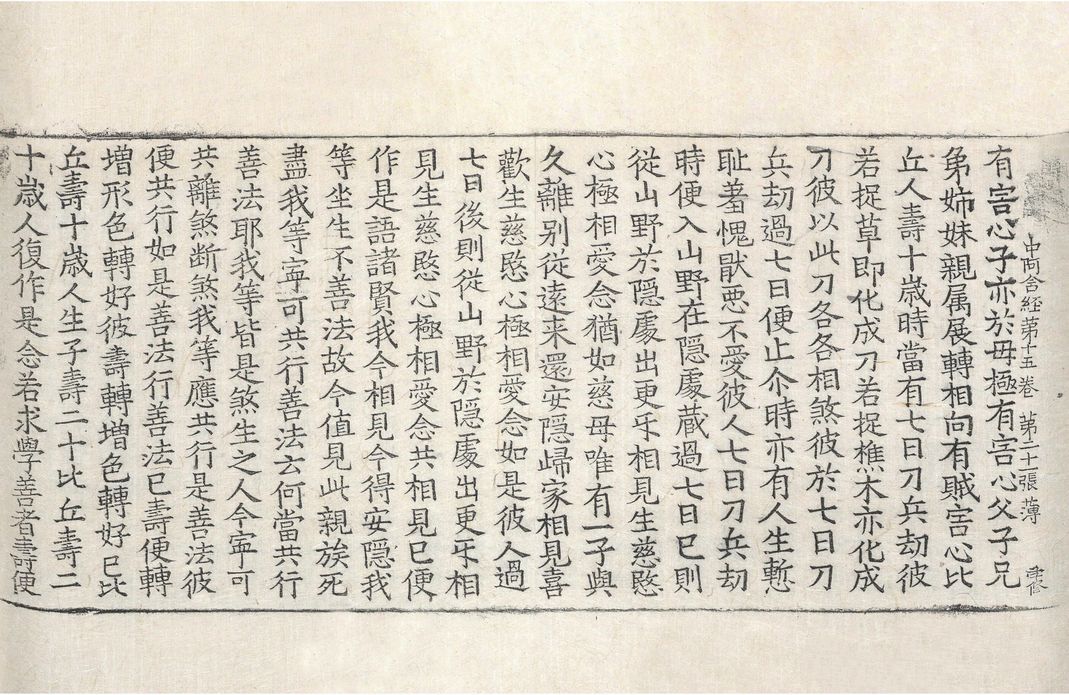 中阿含経第十五巻 第二十一張 薄
有害心子亦於母極有害心父子兄
弟姉妹親属展轉相向有賊害心比
丘人壽十歳時當有七日刀兵劫彼
若捉草即化成刀若捉樵木亦化成
刀彼以此刀各各相煞彼於七日刀
兵劫過七日便止尒時亦有人生慙
耻羞愧猒惡不愛彼人七日刀兵劫
時便入山野在隱處蔵過七日已則
從山野於隱處出更㸦相見生慈愍
心極相愛念猶如慈母唯有一子與
久離别從遠来還安隱歸家相見喜
歡生慈愍心極相愛念如是彼人過
七日後則從山野於隱處出更㸦相
見生慈愍心極相愛念共相見已便
作是語諸賢我今相見今得安隱我
等坐生不善法故今值見此親族死
盡我等寧可共行善法云何當共行
善法耶我等皆是煞生之人今寧可
共離煞断煞我等應共行是善法彼
便共行如是善法行善法已壽便轉
増形色轉好彼壽轉増色轉好已比
丘壽十歳人生子壽二十比丘壽二
十歳人復作是念若求學善者壽便